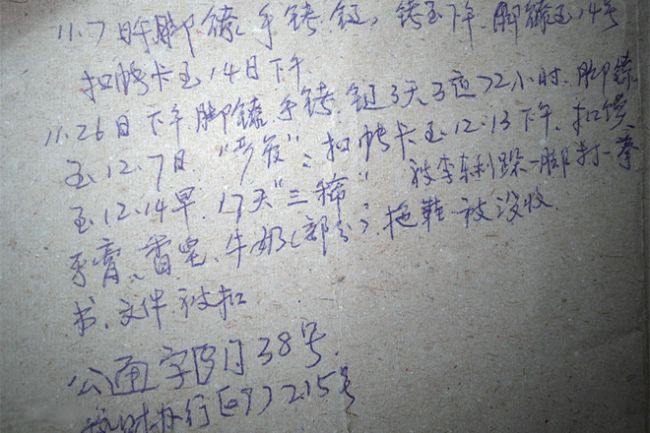 11.7日午脚镣、手铐、链,铐至下午.脚镣至14号
扣帐卡至14日下午
11.26日下午脚镣手铐.链3天3夜72小时.脚镣
至12.7日."严管":扣帐卡至12.13下午.扣馍
至12.14早.17天"三稀" 被李利跺一脚打一拳
牙膏、香皂、牛奶(部分)、拖鞋被没收
书、文件被扣
公通字[]38号.
财办行(09)215号